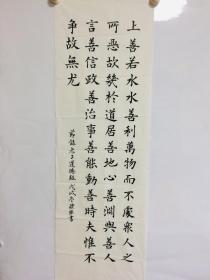 上善若水水善利萬物而不處衆人之
所惡故幾於道居善地心善淵與善人
言善信政善治事善能動善時夫惟不
爭故無尤
節錄老子道德經 戊戌冬 書